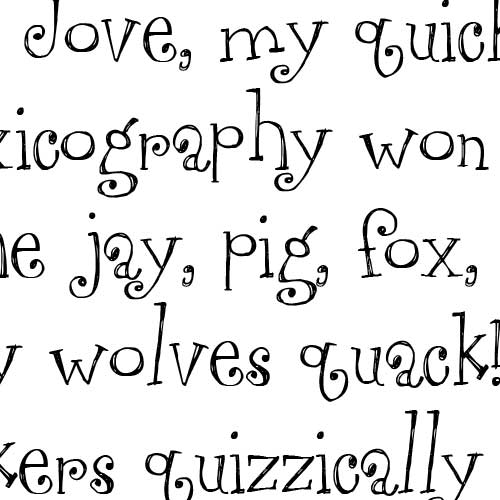 Jove, my quick
xicography won
he jay, pig, fox,
y wolves quack!
kers quizzically